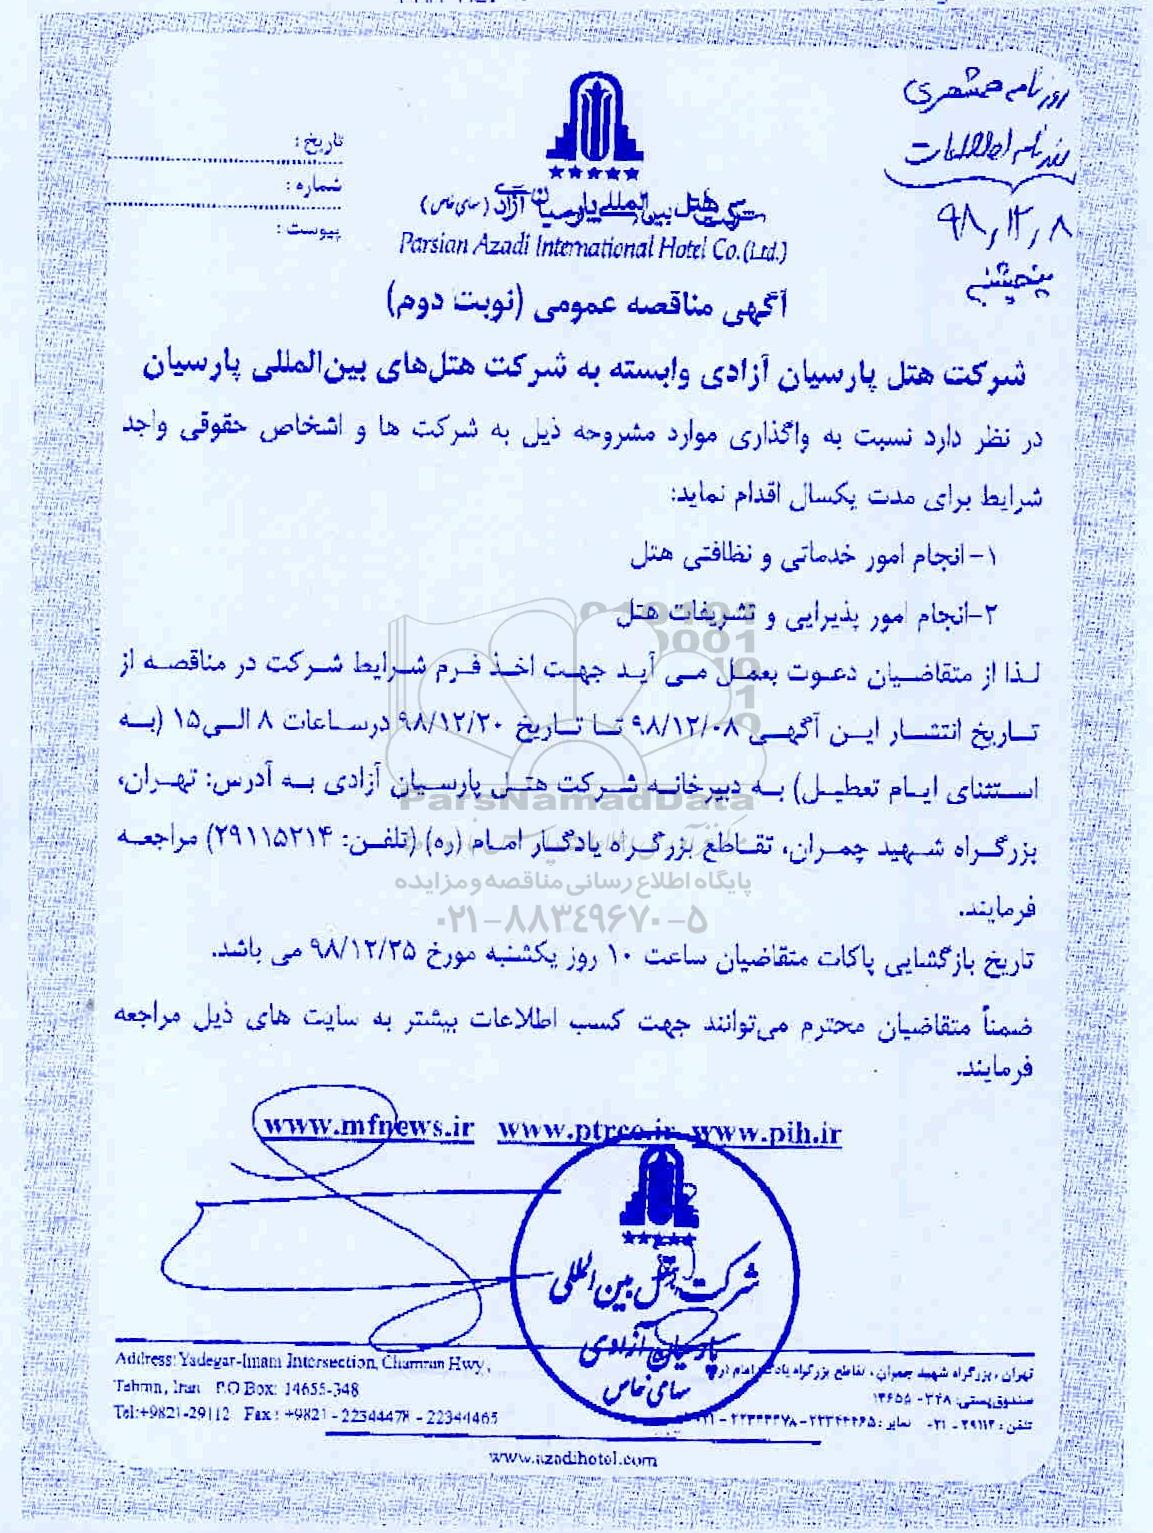 روزنامه همشهری
روزنامه اطلاعات
۹۸,۱۲,۸
پنجشنبه
تاریخ :
شماره :
پیوست :
شرکت هتل بین المللی پارسیان آزادی (سهامی خاص)
Parsian Azadi International Hotel Co.(Ltd.)
آگهی مناقصه عمومی (نوبت دوم)
شرکت هتل پارسیان آزادی وابسته به شرکت هتل‌های بین‌المللی پارسیان
در نظر دارد نسبت به واگذاری موارد مشروحه ذیل به شرکت ها و اشخاص حقوقی واجد
شرایط برای مدت یکسال اقدام نماید:
۱- انجام امور خدماتی و نظافتی هتل
۲-انجام امور پذیرایی و تشریفات هتل
لذا از متقاضیان دعوت بعمل می آید جهت اخذ فرم شرایط شرکت در مناقصه از
تاریخ انتشار این آگهی ۹۸/۱۲/۰۸ تا تاریخ ۹۸/۱۲/۲۰ درساعات ۸ الی۱۵ (به
استثنای ایام تعطیل) به دبیرخانه شرکت هتل پارسیان آزادی به آدرس: تهران،
ParsNamadData
بزرگراه شهید چمران، تقاطع بزرگراه یادگار امام (ره) (تلفن: ۲۹۱۱۵۲۱۴) مراجعه
پایگاه اطلاع رسانی مناقصه و مزایده
فرمایند.
۰۲۱-۸۸۳۴۹۶۷۰-۵
تاریخ بازگشایی پاکات متقاضیان ساعت ۱۰ روز یکشنبه مورخ ۹۸/۱۲/۲۵ می باشد.
ضمناً متقاضیان محترم می‌توانند جهت کسب اطلاعات بیشتر به سایت های ذیل مراجعه
فرمایند.
www.mfnews.ir www.ptrco.ir www.pih.ir
شرکت هتل بین المللی
پارسیان آزادی
سهامی خاص
Address: Yadegar-Imam Intersection, Chamran Hwy.,
Tehran, Iran P.O Box: 14655-348
Tel:+9821-29112 Fax : +9821 - 22344478 - 22344465
تهران ، بزرگراه شهید چمران ، تقاطع بزرگراه یادگار امام (ره)
صندوق پستی: ۳۴۸ - ۱۴۶۵۵
تلفن : ۲۹۱۱۲ - ۰۲۱ نمابر : ۲۲۳۴۴۴۶۵ - ۲۲۳۴۴۴۷۸ - ۰۲۱
www.azadihotel.com